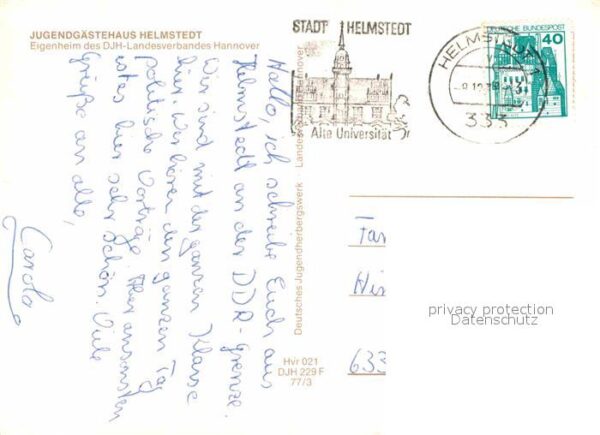 JUGENDGÄSTEHAUS HELMSTEDT
Eigenheim des DJH-Landesverbandes Hannover
Hallo, ich schreibe Euch aus
Helmstedt an der DDR-Grenze.
Wir sind mit der ganzen Klasse
hier. Wir hören den ganzen Tag
politische Vorträge. Aber ansonsten
ist es hier sehr schön. Viele
Grüße an alle,
Carola
Deutsches Jugendherbergswerk · Landesverband Hannover
Hvr 021
DJH 229 F
77/3
STADT HELMSTEDT
Alte Universität
HELMSTEDT 1
333
DEUTSCHE BUNDESPOST
40
Fam
Hin
633
privacy protection
Datenschutz